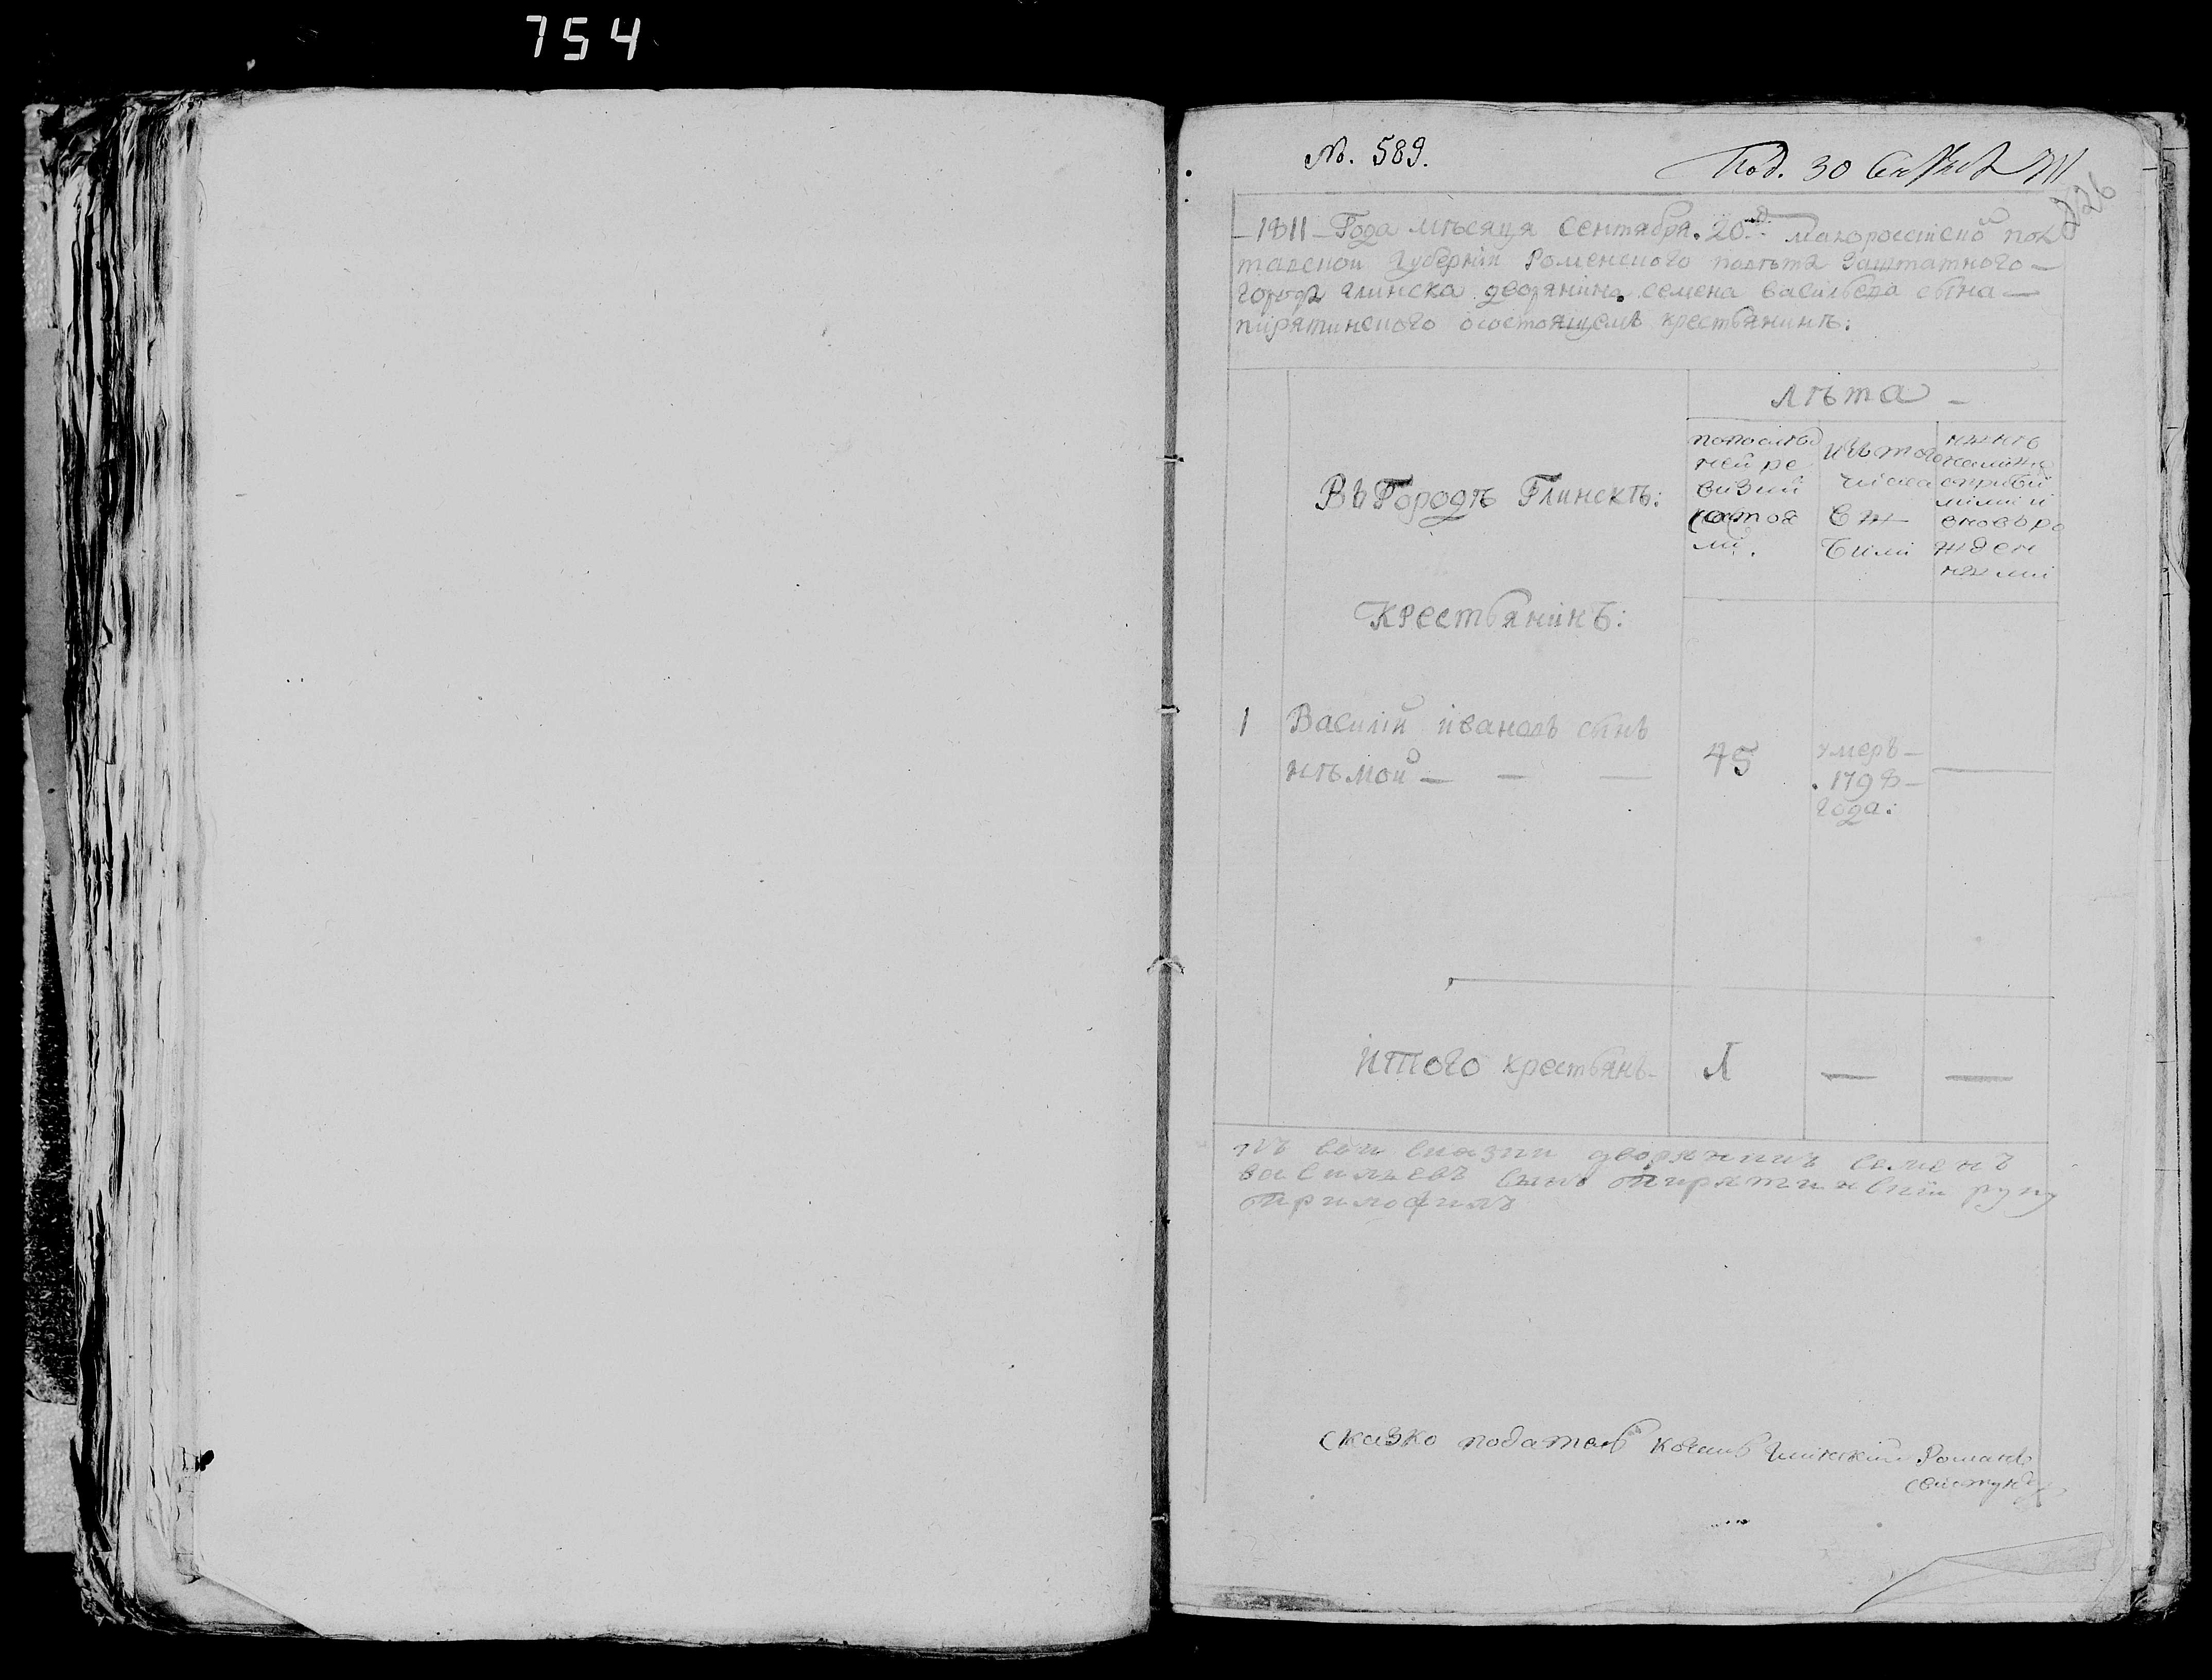 754
№. 589.
Под. 30
826
1811 Года мѣсяця сентября. 20го малороссиской пол
тавской губернии Роменского повѣта Заштатного
города глинска дворянина семена васильева сына
пирятинского осостоящемъ крестьянинѣ:
лѣта
Въ Городѣ Глинскѣ:
попослѣд
ней ре
визии
состоя
ли.
Изъ того
числа
вы
были
нынѣ
налицо
сприбы
лими и
вновь ро
жден
ными
Крестьянинъ:
1 Василий ивановъ сынъ
нѣмой
45
умеръ
1798
года:
итого крестьянъ 1
къ сей сказки дворянинъ семенъ
васильевъ сынъ пирятинский руку
приложилъ
Сказко подател Глинский Романъ